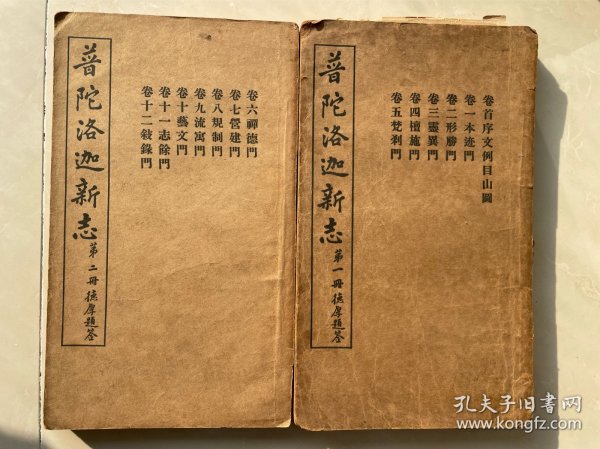 普陀洛迦新志
第一冊 德厚題簽
卷首序文例目山圖
卷一本迹門
卷二形勝門
卷三靈異門
卷四檀施門
卷五梵剎門
普陀洛迦新志
第二冊 德厚題簽
卷六禪德門
卷七營建門
卷八規制門
卷九流寓門
卷十藝文門
卷十一志餘門
卷十二敍錄門
孔夫子旧书网
www.kongfz.com